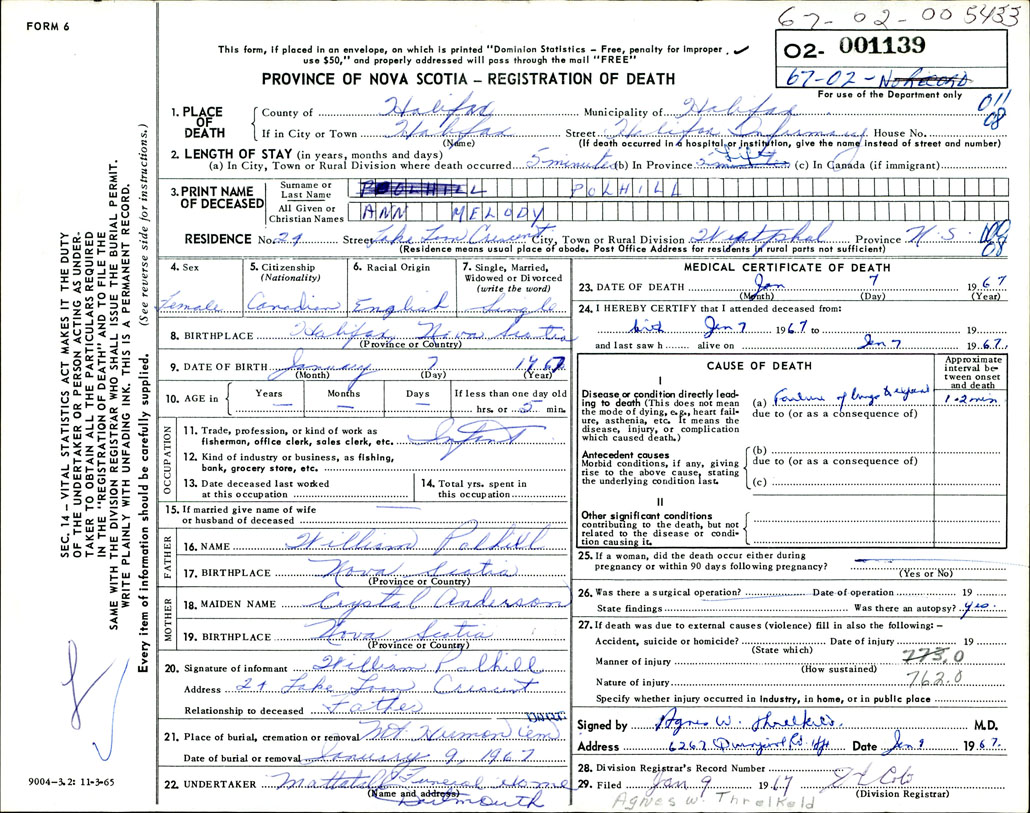 FORM 6
67-02-005433
This form, if placed in an envelope, on which is printed "Dominion Statistics – Free, penalty for improper
use $50," and properly addressed will pass through the mail "FREE"
02- 001139
67-02-No Record
For use of the Department only
011
08
PROVINCE OF NOVA SCOTIA – REGISTRATION OF DEATH
1. PLACE OF DEATH
County of Halifax Municipality of Halifax
If in City or Town Halifax Street Halifax Infirmary House No.
(Name) (If death occurred in a hospital or institution, give the name instead of street and number)
2. LENGTH OF STAY (in years, months and days)
(a) In City, Town or Rural Division where death occurred 5 minutes (b) In Province (c) In Canada (if immigrant)
3. PRINT NAME OF DECEASED
Surname or Last Name POLHILL
All Given or Christian Names ANN MELODY
RESIDENCE No. 24 Street Crescent City, Town or Rural Division Westphal Province N.S.
08
(Residence means usual place of abode. Post Office Address for residents in rural parts not sufficient)
4. Sex
Female
5. Citizenship (Nationality)
Canadian
6. Racial Origin
English
7. Single, Married, Widowed or Divorced (write the word)
Single
8. BIRTHPLACE Halifax Nova Scotia
(Province or Country)
9. DATE OF BIRTH January 7 1967
(Month) (Day) (Year)
10. AGE in Years – Months – Days – If less than one day old
hrs. or 5 min.
OCCUPATION
11. Trade, profession, or kind of work as
fisherman, office clerk, sales clerk, etc. Infant
12. Kind of industry or business, as fishing,
bank, grocery store, etc.
13. Date deceased last worked
at this occupation
14. Total yrs. spent in
this occupation
15. If married give name of wife
or husband of deceased —
FATHER
16. NAME William Polhill
17. BIRTHPLACE Nova Scotia
(Province or Country)
MOTHER
18. MAIDEN NAME Crystal Anderson
19. BIRTHPLACE Nova Scotia
(Province or Country)
20. Signature of informant William Polhill
Address 24 Crescent
Relationship to deceased Father
21. Place of burial, cremation or removal Mt Hermon Cem
Date of burial or removal January 9, 1967
22. UNDERTAKER Mattatall Funeral Home
(Name and address) Dartmouth
MEDICAL CERTIFICATE OF DEATH
23. DATE OF DEATH Jan 7 1967
(Month) (Day) (Year)
24. I HEREBY CERTIFY that I attended deceased from:
birth Jan 7 1967 to 19
and last saw h alive on Jan 7 1967.
CAUSE OF DEATH
Approximate interval between onset and death
I
Disease or condition directly leading to death (This does not mean the mode of dying, e.g., heart failure, asthenia, etc. It means the disease, injury, or complication which caused death.)
(a) Failure of lungs to expand 1-2 min
due to (or as a consequence of)
Antecedent causes
Morbid conditions, if any, giving rise to the above cause, stating the underlying condition last.
(b)
due to (or as a consequence of)
(c)
II
Other significant conditions
contributing to the death, but not related to the disease or condition causing it.
25. If a woman, did the death occur either during
pregnancy or within 90 days following pregnancy?
(Yes or No)
26. Was there a surgical operation? Date of operation 19
State findings Was there an autopsy? yes.
27. If death was due to external causes (violence) fill in also the following: –
Accident, suicide or homicide? Date of injury 19
(State which)
Manner of injury 773.0
(How sustained)
Nature of injury 762.0
Specify whether injury occurred in Industry, in home, or in public place
Signed by Agnes W. Threlkeld M.D.
Address 6267 Date Jan 9 1967.
28. Division Registrar's Record Number
29. Filed Jan 9 1967
(Division Registrar)
Agnes W. Threlkeld
SEC. 14 – VITAL STATISTICS ACT MAKES IT THE DUTY
OF THE UNDERTAKER OR PERSON ACTING AS UNDER-
TAKER TO OBTAIN ALL THE PARTICULARS REQUIRED
IN THE "REGISTRATION OF DEATH" AND TO FILE THE
SAME WITH THE DIVISION REGISTRAR WHO SHALL ISSUE THE BURIAL PERMIT.
WRITE PLAINLY WITH UNFADING INK. THIS IS A PERMANENT RECORD.
Every item of information should be carefully supplied. (See reverse side for instructions.)
9004-3.2: 11-3-65